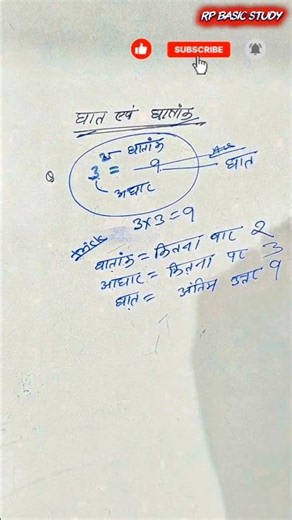 RP BASIC STUDY
SUBSCRIBE
घात एवं घातांक
घातांक
3² = 9
घात
आधार
3×3=9
Trick
घातांक = कितना बार 2
आधार = कितना पर 3
घात = अंतिम उत्तर 9